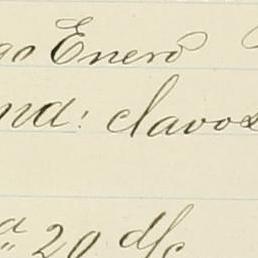 go Enero
nd: clavos
a 20 d/c